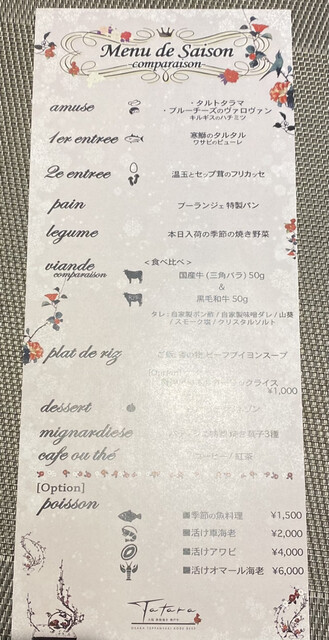 Menu de Saison
-comparaison-
amuse
・タルトタラマ
・ブルーチーズのヴァロヴァン
キルギスのハチミツ
1er entree
寒鰤のタルタル
ワサビのピューレ
2e entree
温玉とセップ茸のフリカッセ
pain
ブーランジェ特製パン
legume
本日入荷の季節の焼き野菜
viande
comparaison
＜食べ比べ＞
国産牛 (三角バラ) 50g
&
黒毛和牛 50g
タレ : 自家製ポン酢 / 自家製味噌ダレ / 山葵
/ スモーク塩 / クリスタルソルト
plat de riz
ビーフブイヨンスープ
ックライス
¥1,000
dessert
mignardiese
3種
cafe ou thé
コーヒー / 紅茶
[Option]
poisson
■季節の魚料理 ¥1,500
■活け車海老 ¥2,000
■活けアワビ ¥4,000
■活けオマール海老 ¥6,000
Tatara